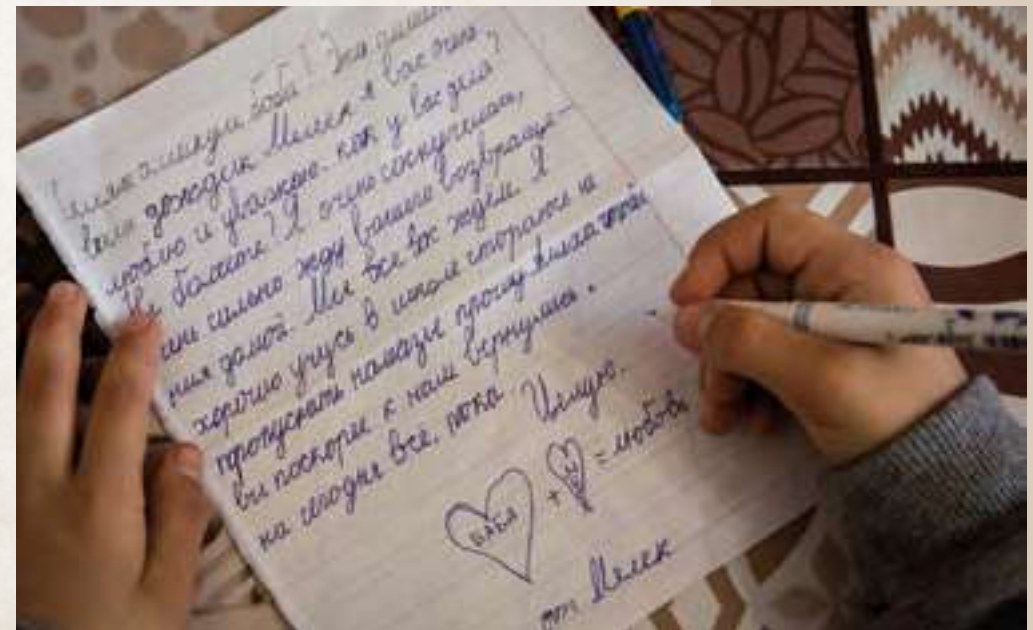 алейкум баба! Это пишет
ваш дождик Мелек я вас очень
люблю и уважаю. как у вас дела
Не болеете? Я очень соскучилась,
очень сильно жду вашего возвраще-
ния домой. Мы все вас ждём. Я
хорошо учусь в школе стараюсь не
пропускать намазы прошу Аллаха чтобы
вы поскорее к нам вернулись.
на сегодня все, пока. Целую.
БАБА + Я = любовь
от Мелек